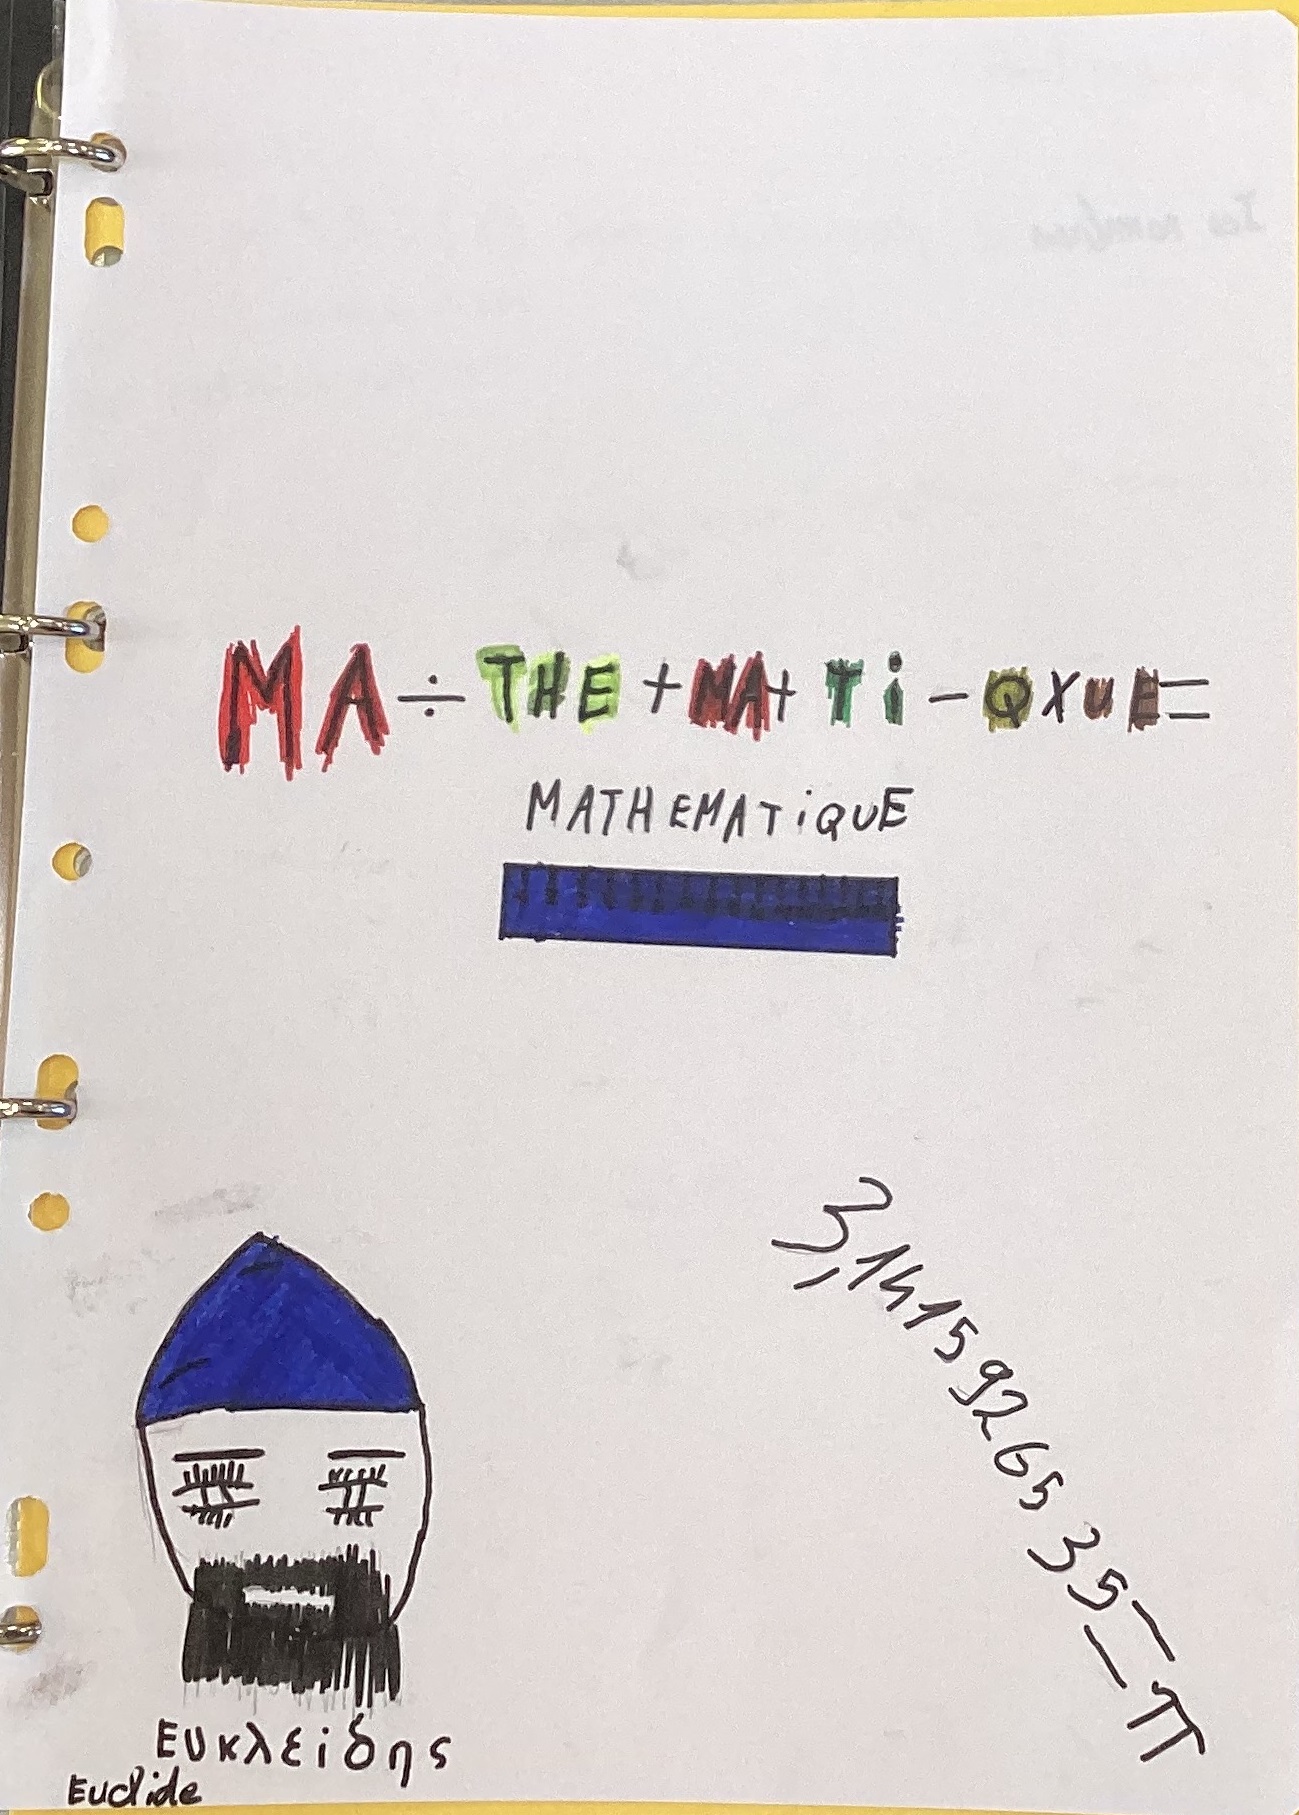 MA ÷ THE + MA + Ti - Q X U E =
MATHEMATiQUE
3,14159265 35 = π
Ευκλείδης
Euclide